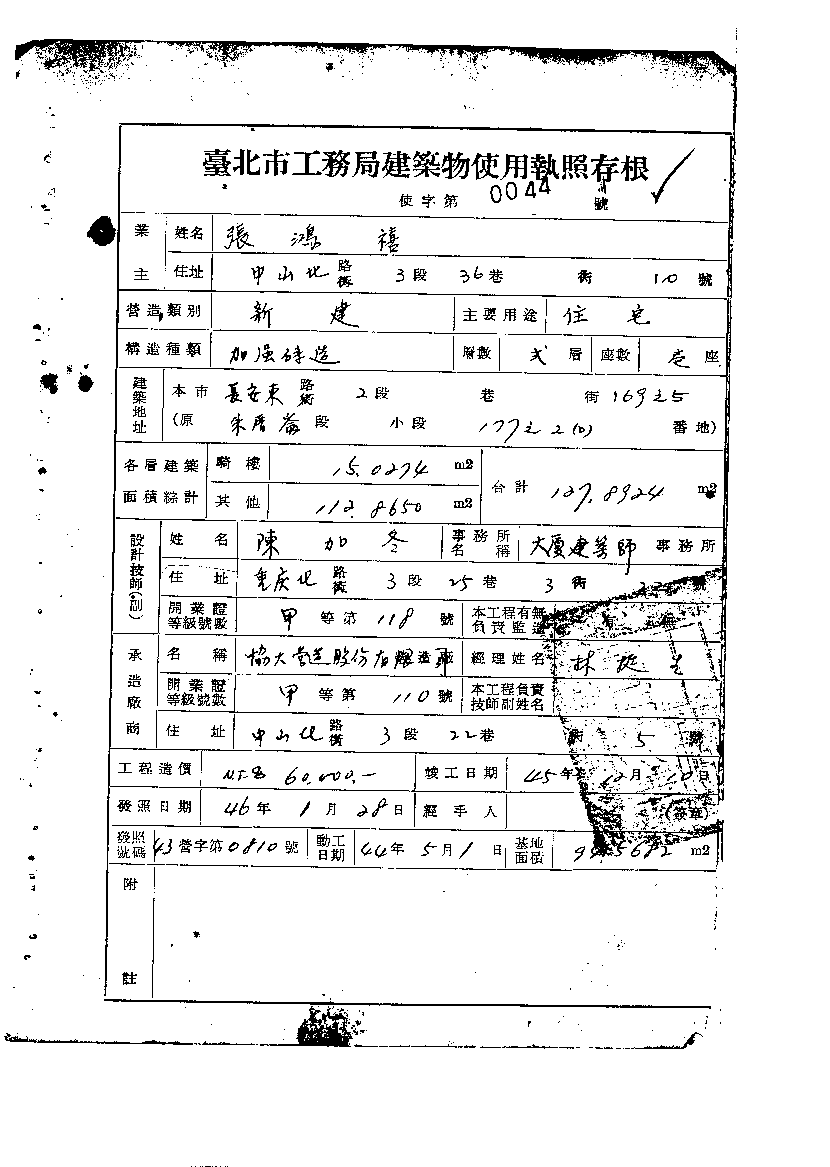 臺北市工務局建築物使用執照存根
使字第 0044 號
業主 姓名 張鴻禧
住址 中山北路街 3段 36巷 街 10號
營造類別 新建 主要用途 住宅
構造種類 加强磚造 層數 弍層 座數 壱座
建築地址 本市 長安東路街 2段 巷 街 169之5
(原 朱厝崙段 小段 177之2(0) 番地)
各層建築面積綜計 騎樓 15.0274 m2 合計 127.8924 m2
其他 112.8650 m2
設計技師(副) 姓名 陳加冬 事務所名稱 大廈建築師事務所
住址 重庆北路街 3段 25巷 3街 號
開業證等級號數 甲等第 118 號 本工程有無負責監造 有 無
承造廠商 名稱 協大营造股份有限 造廠 經理姓名 林 生
開業證等級號數 甲等第 110號 本工程負責技師副姓名
住址 中山北路街 3段 22巷 街 5 號
工程造價 N.T.$ 60,000.- 竣工日期 45年 12月 10日
發照日期 46年 1月 28日 經手人 (簽章)
發照號碼 43營字第0810號 動工日期 44年 5月1日 基地面積 m2
附註